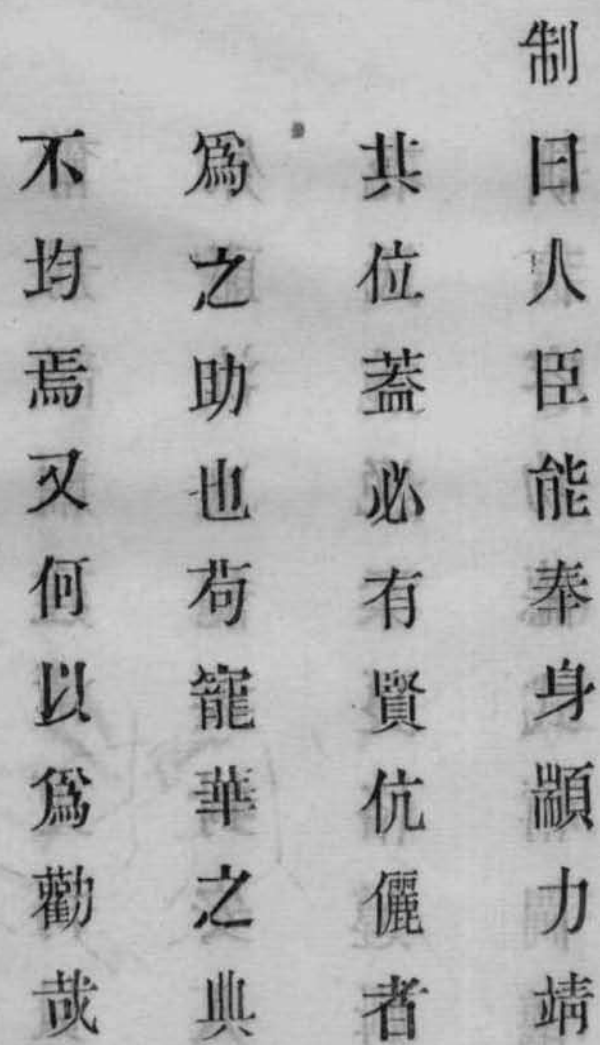 制曰人臣能奉身顓力靖
共位葢必有賢伉儷者
爲之助也苟寵華之典
不均焉又何以爲勸哉